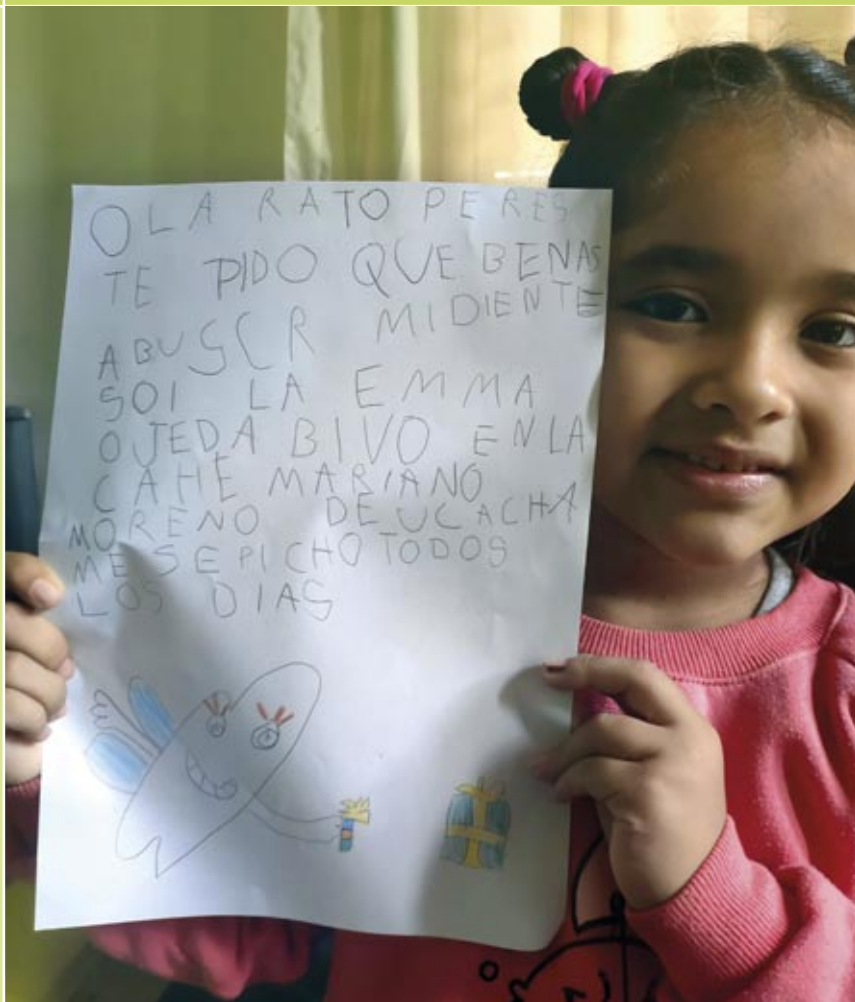 OLA RATO PERES
TE PIDO QUE BENAS
ABUSCR MIDIENTE
SOI LA EMMA
OJEDA BIVO ENLA
CAHE MARIANO
MORENO DE UCACHA
ME SEPICHO TODOS
LOS DIAS